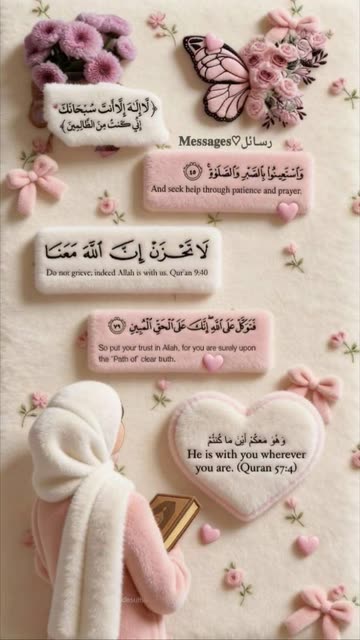 ﴿لَا إِلَٰهَ إِلَّا أَنتَ سُبْحَانَكَ
إِنِّي كُنتُ مِنَ الظَّالِمِينَ﴾
Messages♡رسائل
وَاسْتَعِينُوا بِالصَّبْرِ وَالصَّلَوٰةِ ۚ ٤٥
And seek help through patience and prayer.
لَا تَحْزَنْ إِنَّ اللَّهَ مَعَنَا
Do not grieve; indeed Allah is with us. Qur'an 9:40
فَتَوَكَّلْ عَلَى اللَّهِ ۖ إِنَّكَ عَلَى الْحَقِّ الْمُبِينِ ٧٩
So put your trust in Allah, for you are surely upon
the "Path of" clear truth.
وَهُوَ مَعَكُمْ أَيْنَ مَا كُنتُمْ
He is with you wherever
you are. (Quran 57:4)